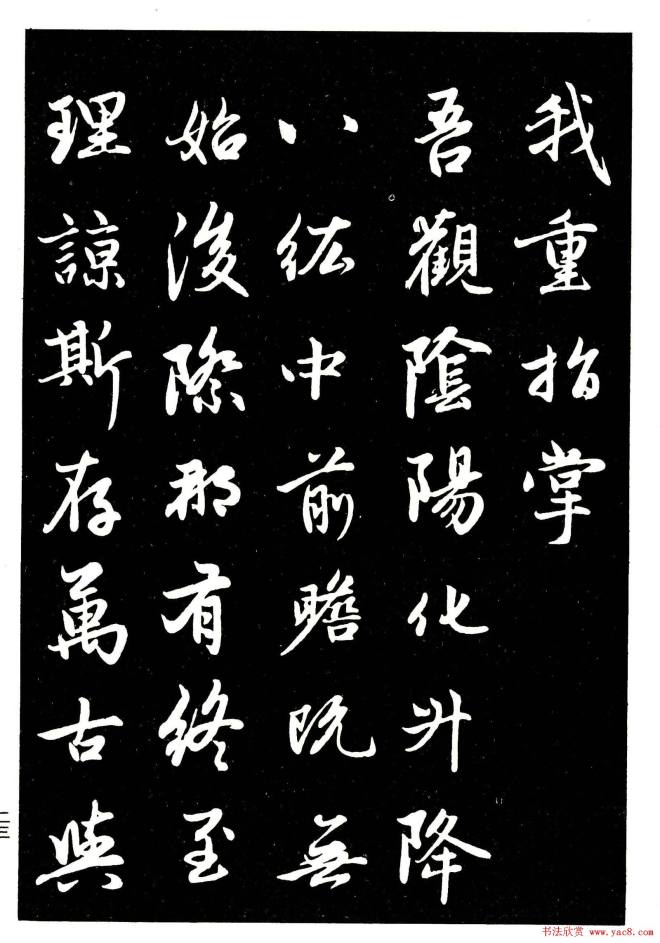 我重指掌
吾觀陰陽化升降
八紘中前瞻既無
始後際那有終至
理諒斯存萬古與
二三
书法欣赏 www.yac8.com